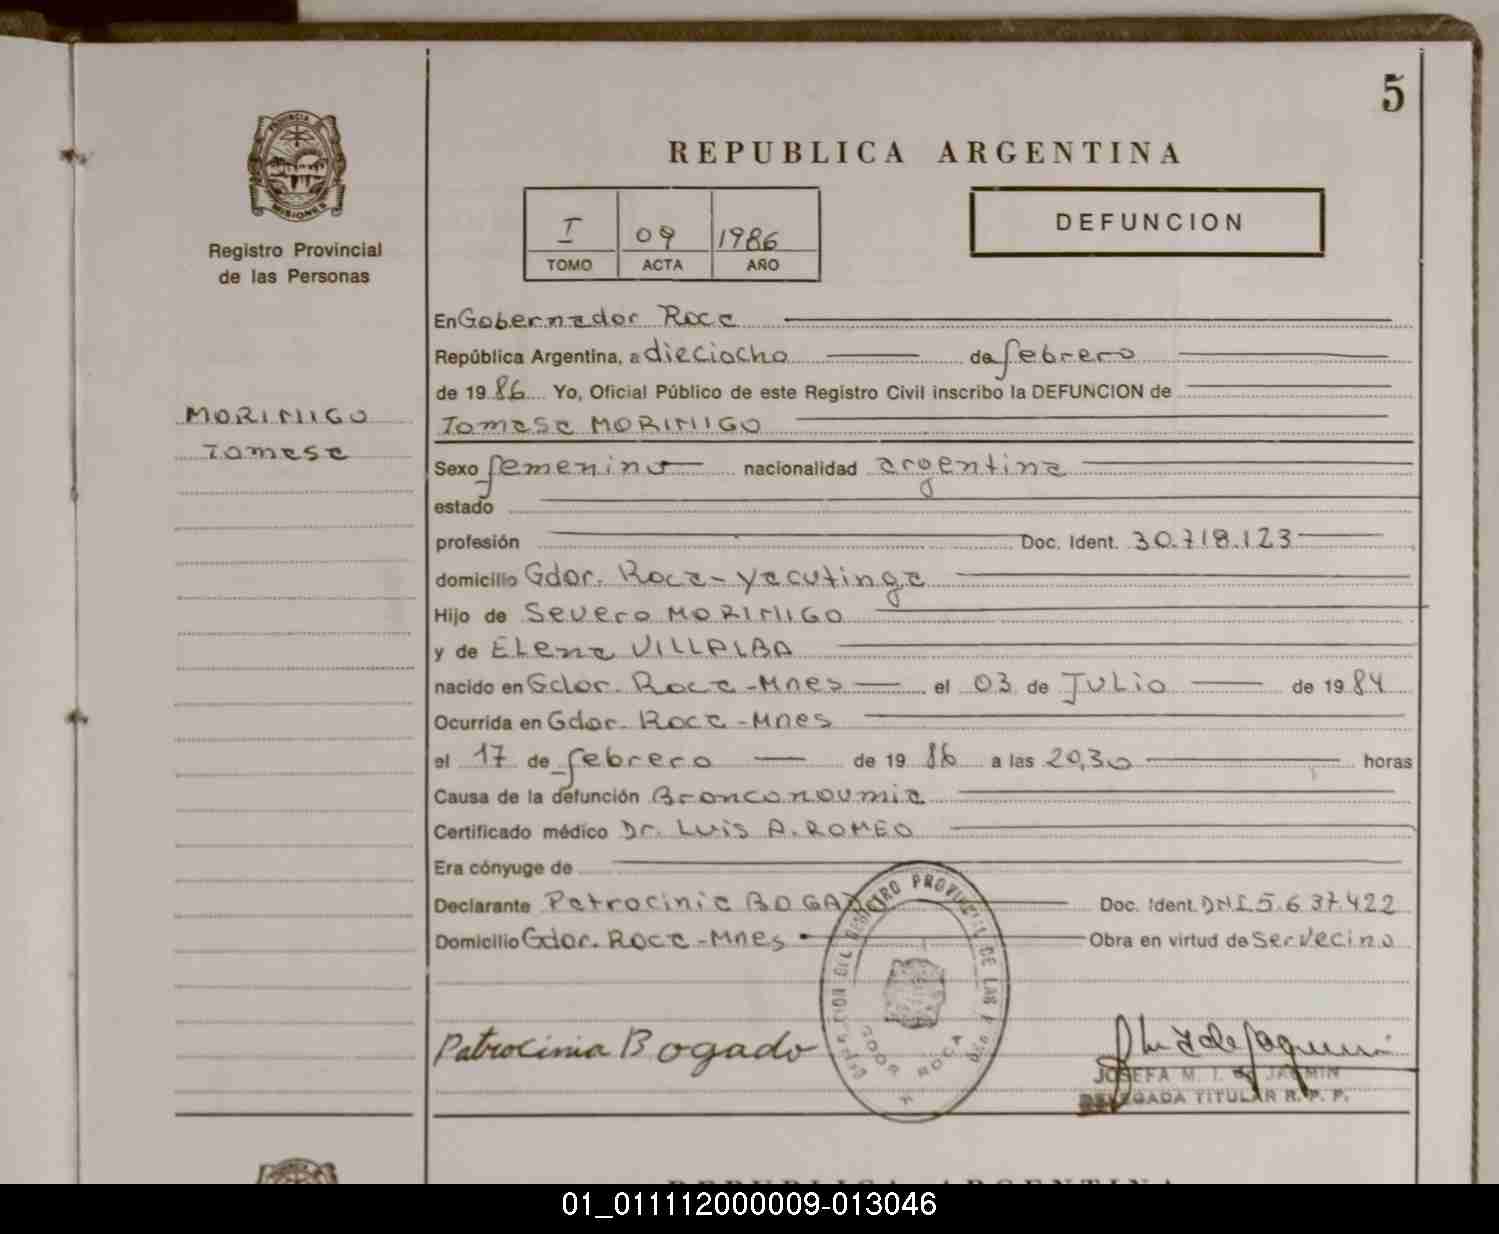 5
PROVINCIA
MISIONES
Registro Provincial
de las Personas
MORINIGO
Tomasa
REPUBLICA ARGENTINA
I 09 1986
TOMO ACTA AÑO
DEFUNCION
En Gobernador Roca
República Argentina, a dieciocho de febrero
de 1986 Yo, Oficial Público de este Registro Civil inscribo la DEFUNCION de
Tomasa MORINIGO
Sexo femenino nacionalidad argentina
estado
profesión Doc. Ident. 30.718.123
domicilio Gdor. Roca-Yacutinga
Hijo de Severo MORINIGO
y de Elena VILLALBA
nacido en Gdor. Roca-Mnes el 03 de JULio de 1984
Ocurrida en Gdor. Roca-Mnes
el 17 de febrero de 1986 a las 20,30 horas
Causa de la defunción Bronconoumia
Certificado médico Dr. LUIS A. ROMEO
Era cónyuge de
Declarante Patrocinia BOGAD Doc. Ident. DNI 5.637.422
Domicilio Gdor. Roca-Mnes Obra en virtud de Ser vecino
DEL REGISTRO PROVINCIAL DE LAS
GDOR ROCA
Patrocinia Bogado
JOSEFA M. I. de JACMIN
DELEGADA TITULAR R. P. P.
REPUBLICA ARGENTINA
01_011112000009-013046